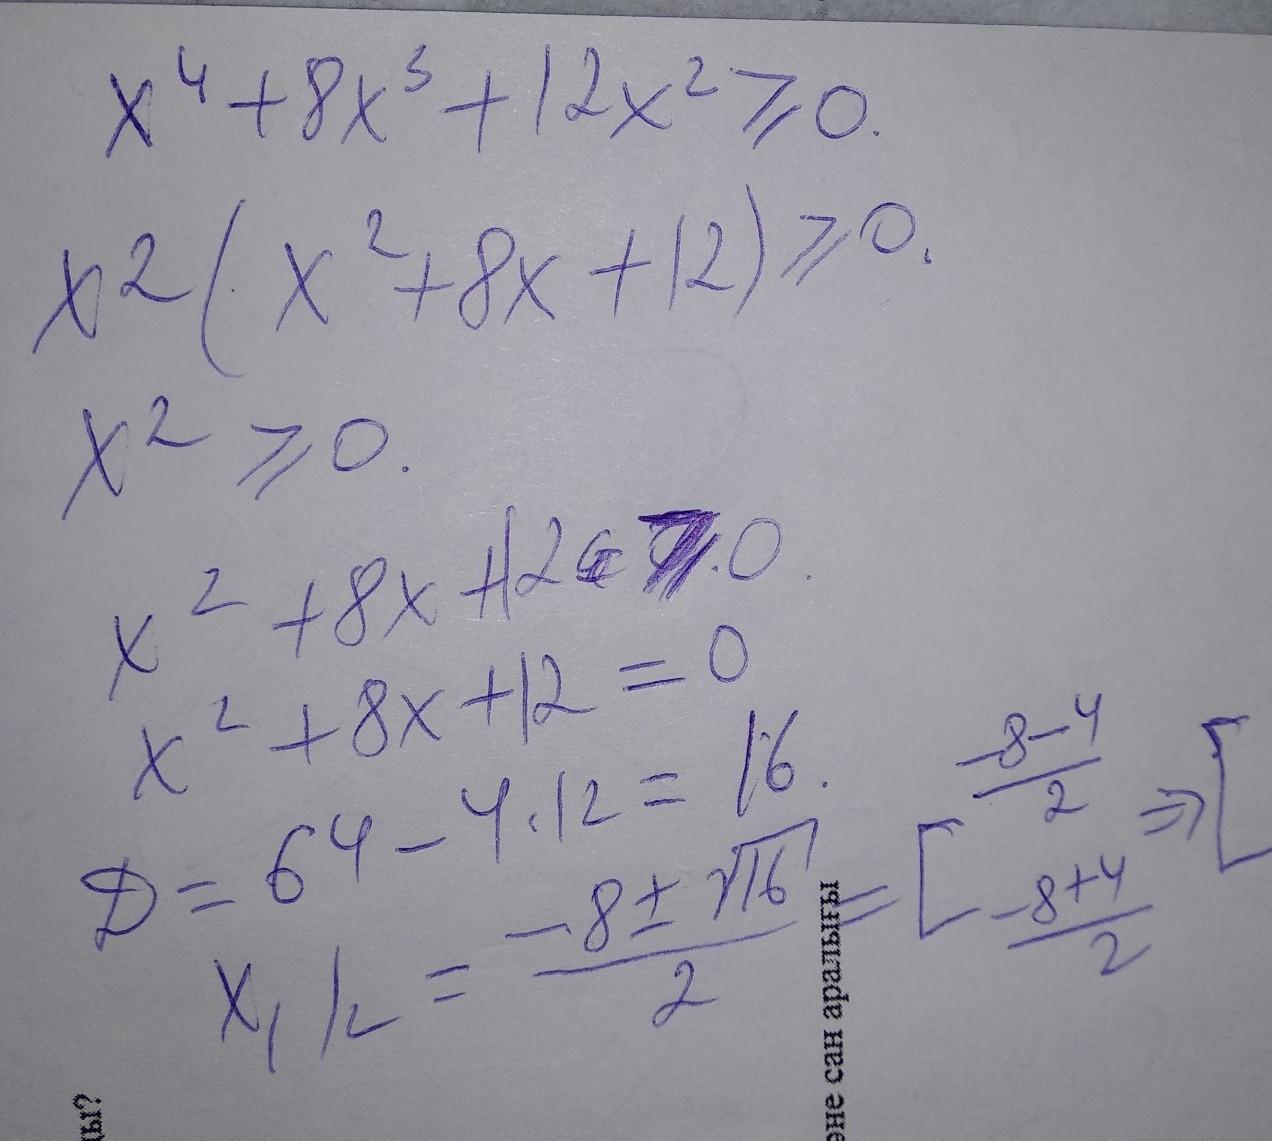 x⁴ + 8x³ + 12x² ⩾ 0.
x² ( x² + 8x + 12 ) ⩾ 0.
x² ⩾ 0.
x² + 8x + 12 ⩾ 0.
x² + 8x + 12 = 0
D = 64 − 4 · 12 = 16.
x₁/₂ = (−8 ± √16)/2 = [ (−8−4)/2 (−8+4)/2 ⇒ [
ды?
әне сан аралығы